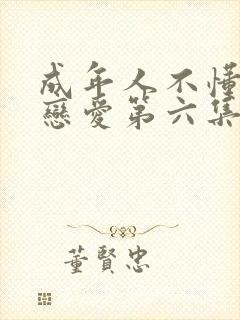 成年人不懂
戀愛第六集
董賢忠